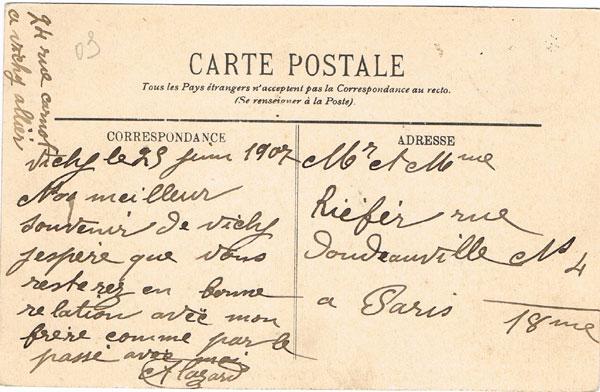 24 rue carnot
a vichy allier
03
CARTE POSTALE
Tous les Pays étrangers n'acceptent pas la Correspondance au recto.
(Se renseigner à la Poste).
CORRESPONDANCE
Vichy le 25 juin 1907
Nos meilleur
souvenir de vichy
jespère que vous
resterez en bonne
relation avec mon
frère comme par le
passe avec moi
ADRESSE
Mr et Mme
Kiéfér rue
Doudeauville No 4
a Paris
18me